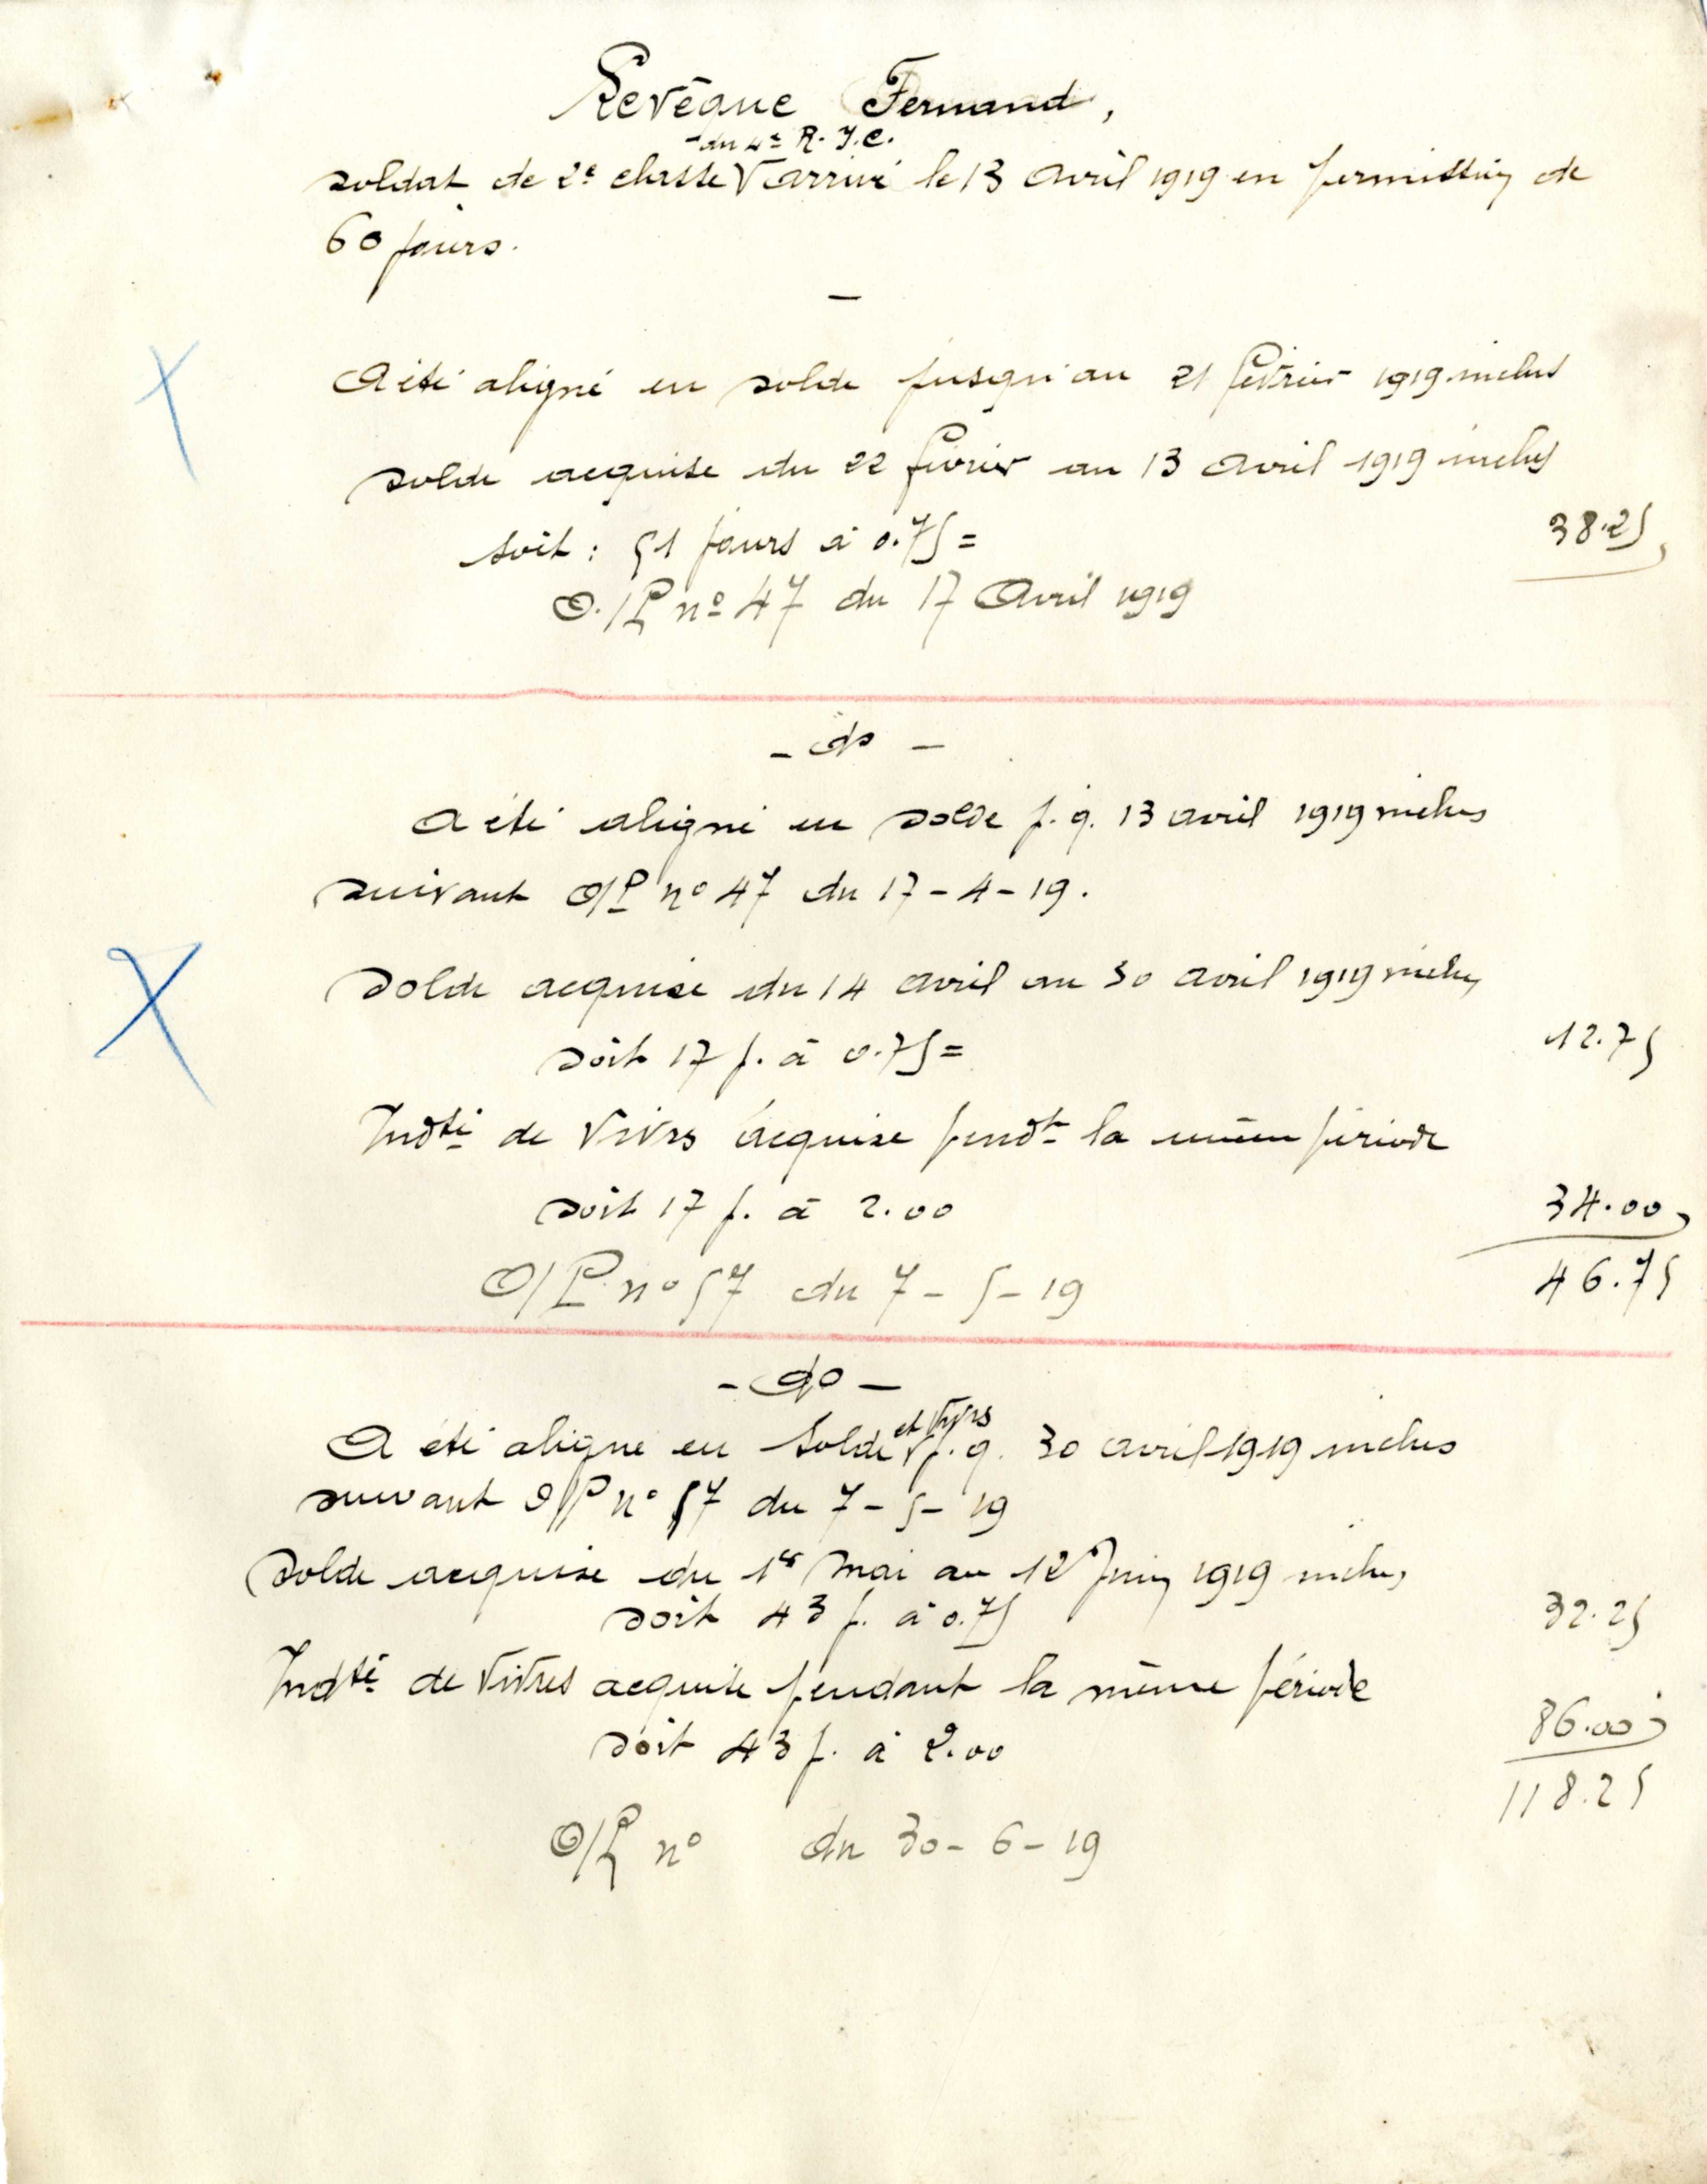 Revêque Fernand,
du 4e R.I.C.
soldat de 2e classe √ arrivé le 13 Avril 1919 en permission de
60 jours.
—
A été aligné en solde jusqu'au 21 février 1919 inclus
solde acquise du 22 février au 13 Avril 1919 inclus
soit : 51 jours à 0.75 = 38.25
O./P nº 47 du 17 Avril 1919
- dº -
A été aligné en solde j.q. 13 avril 1919 inclus
suivant O/P nº 47 du 17-4-19.
Solde acquise du 14 avril au 30 avril 1919 inclus
soit 17 j. à 0.75 = 12.75
Indté de Vivres acquise pendt la même période
soit 17 j. à 2.00 34.00
46.75
O/P nº 57 du 7-5-19
- dº -
A été aligné en solde √ et vivres j.q. 30 avril 1919 inclus
suivant O/P nº 57 du 7-5-19
Solde acquise du 1er Mai au 12 Juin 1919 inclus
soit 43 j. à 0.75 32.25
Indté de Vivres acquise pendant la même période
soit 43 j. à 2.00 86.00
118.25
O/P nº du 30-6-19